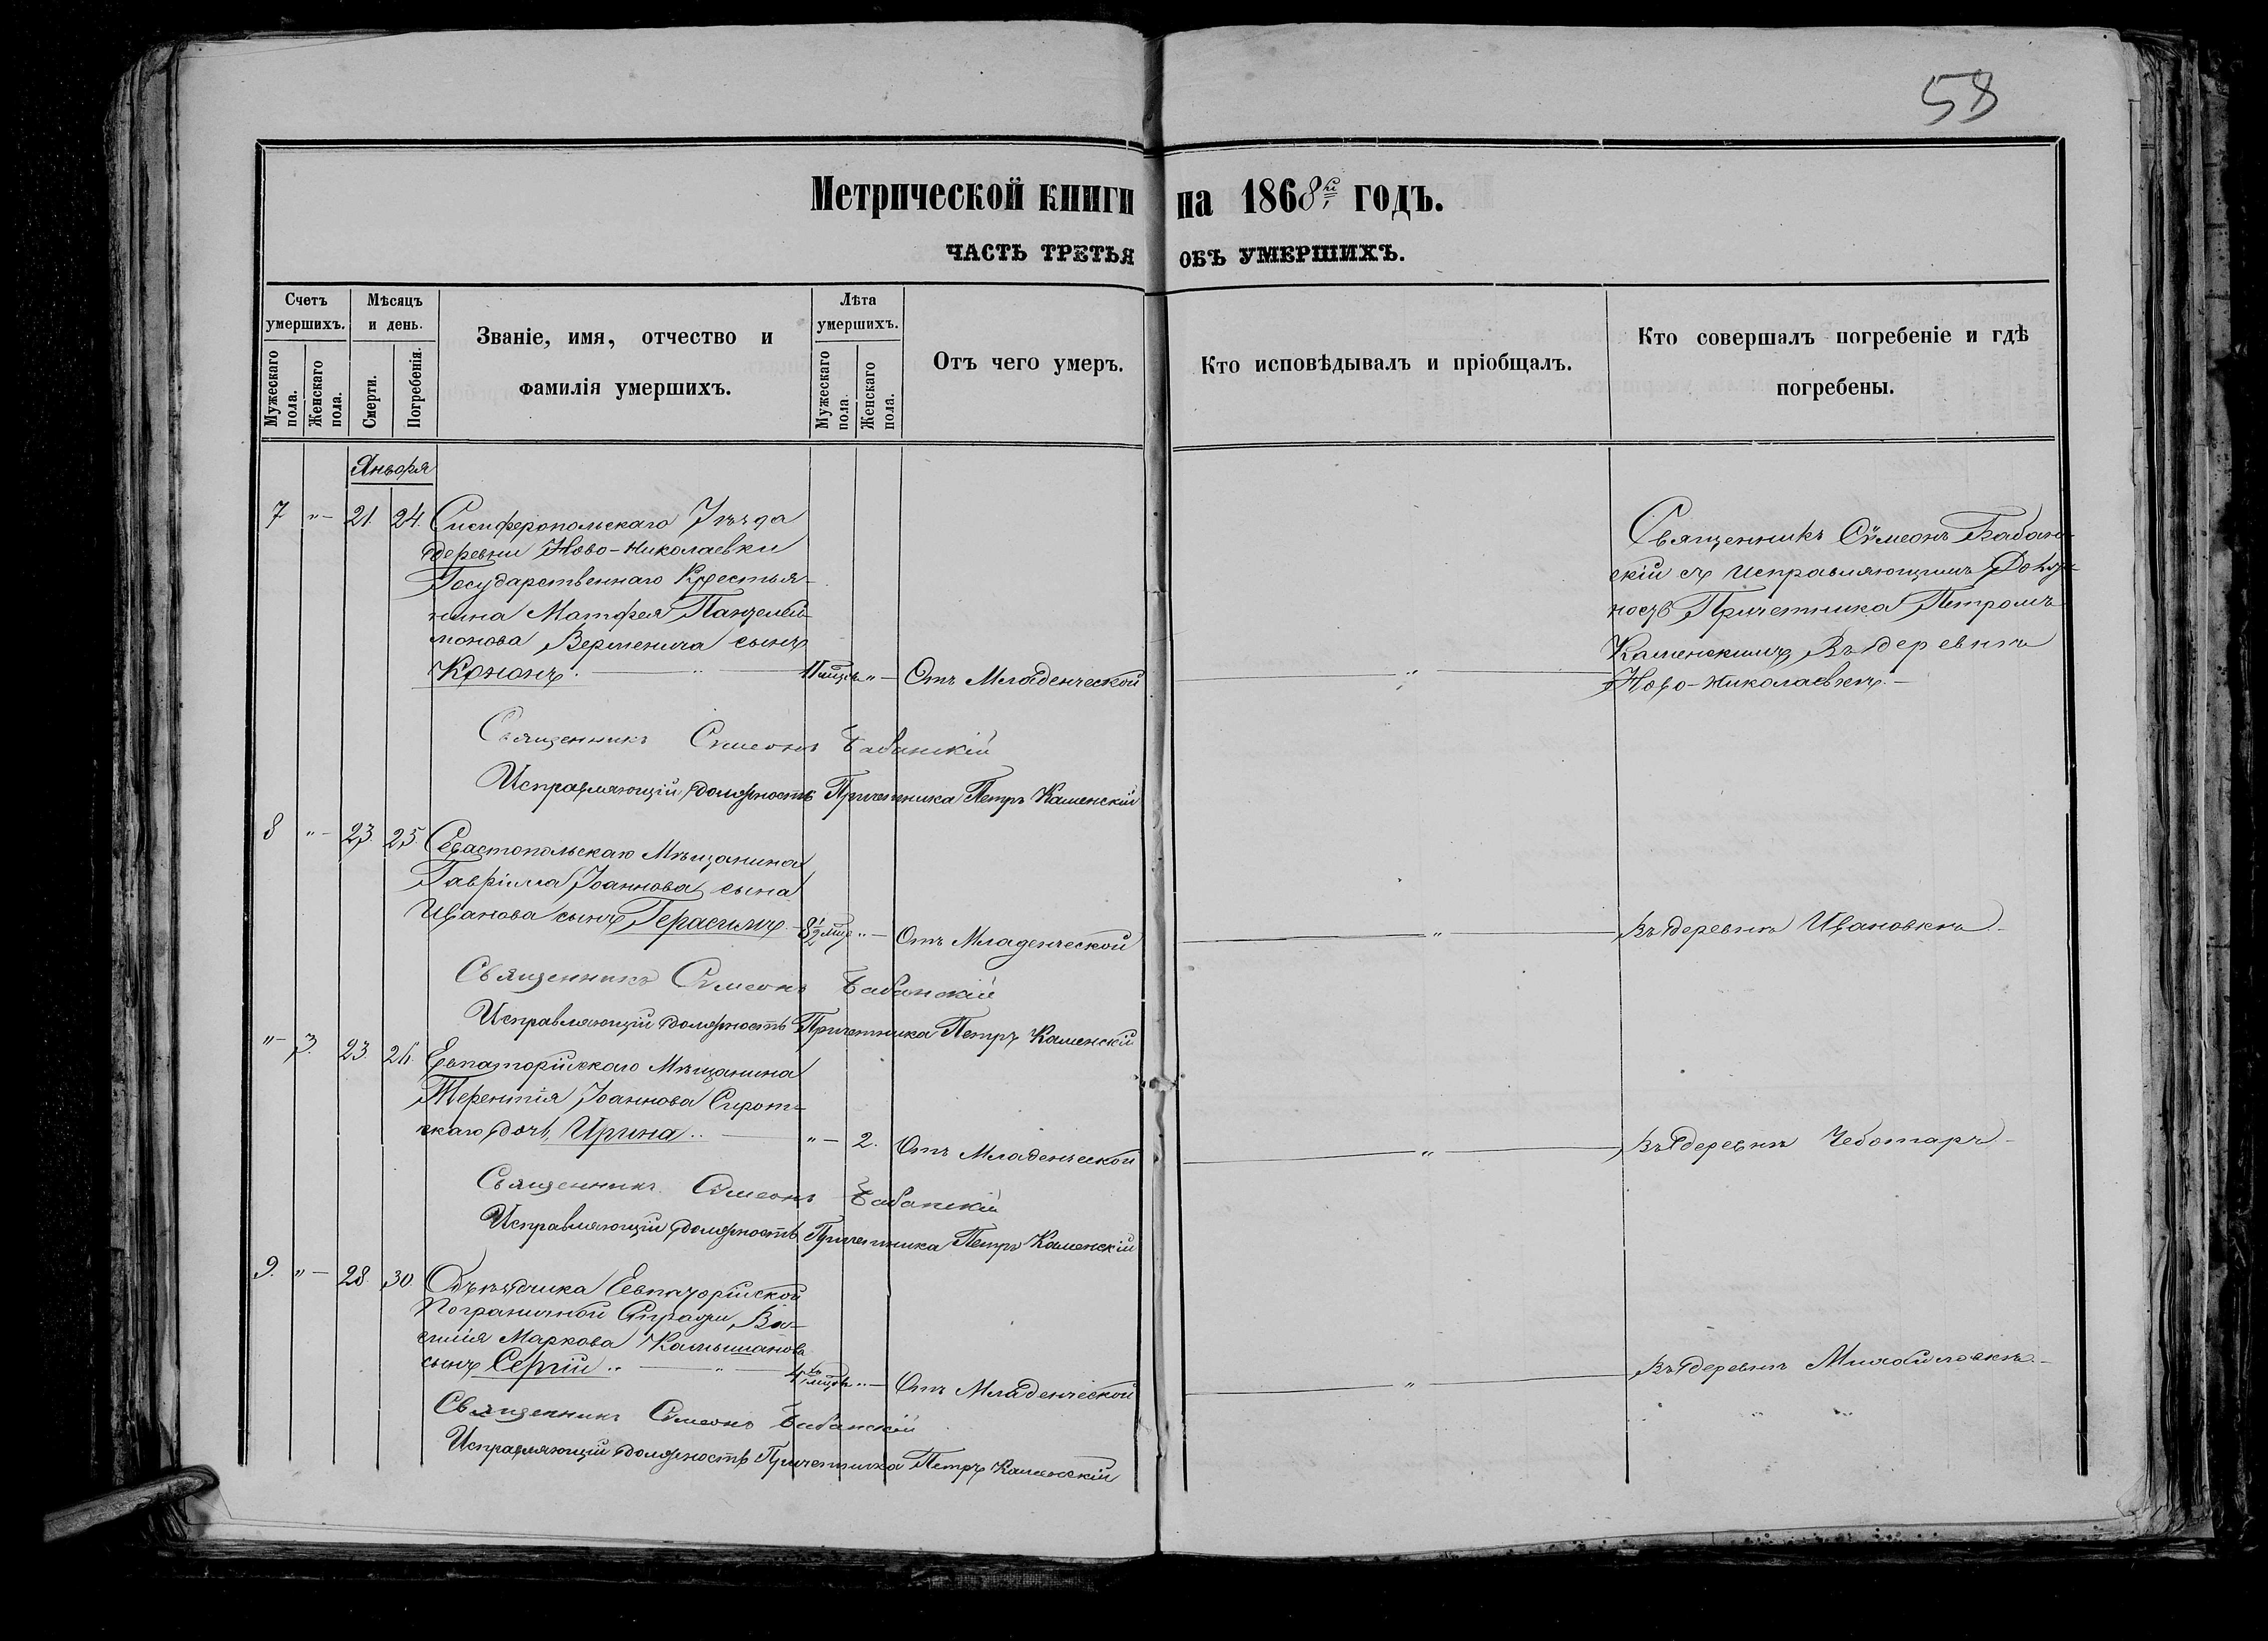 58
Метрической книги на 1868й годъ.
ЧАСТЬ ТРЕТЬЯ ОБЪ УМЕРШИХЪ.
Счетъ умершихъ.
Мужескаго пола.
Женскаго пола.
Мѣсяцъ и день.
Смерти.
Погребенія.
Званіе, имя, отчество и
фамилія умершихъ.
Лѣта умершихъ.
Мужескаго пола.
Женскаго пола.
Отъ чего умеръ.
Кто исповѣдывалъ и пріобщалъ.
Кто совершалъ погребеніе и гдѣ
погребены.
Января
7 "— 21. 24. Симферопольскаго Уѣзда
деревни Ново-Николаевки
Государственнаго Крестья-
нина Матфея Пантелей-
монова Верменича сынъ
Кононъ. — " — 11 мцевъ "— Отъ Младенческой — " —
Священникъ Сѵмеонъ Бабан-
скій съ исправляющимъ Долж-
ность Причетника Петромъ
Каменскимъ Въ деревнѣ
Ново-Николаевкѣ.—
Священникъ Симеонъ Бабанскій
Исправляющій должность Причетника Петръ Каменскій
8 "— 23. 25. Севастопольскаго Мѣщанина
Гавріила Іоаннова сына
Иванова сынъ Герасимъ.— 8½ мце "— Отъ Младенческой — " — Въ деревнѣ Ивановкѣ.—
Священникъ Симеонъ Бабанскій
Исправляющій должность Причетника Петръ Каменскій
"— 3. 23. 26. Евпаторійскаго Мѣщанина
Терентія Іоаннова Сирот-
скаго дочь, Ирина.. — "— 2. Отъ Младенческой — " — Въ деревнѣ Чеботаръ—
Священникъ Симеонъ Бабанскій
Исправляющій должность Причетника Петръ Каменскій
9. "— 28. 30. Объѣздчика Евпаторійской
Пограничной Стражи, Ва-
силія Маркова Камышанова
сынъ Сергій.. — " — 4 мцевъ "— Отъ Младенческой — " — Въ деревнѣ
Священникъ Симеонъ Бабанскій
Исправляющій должность Причетника Петръ Каменскій